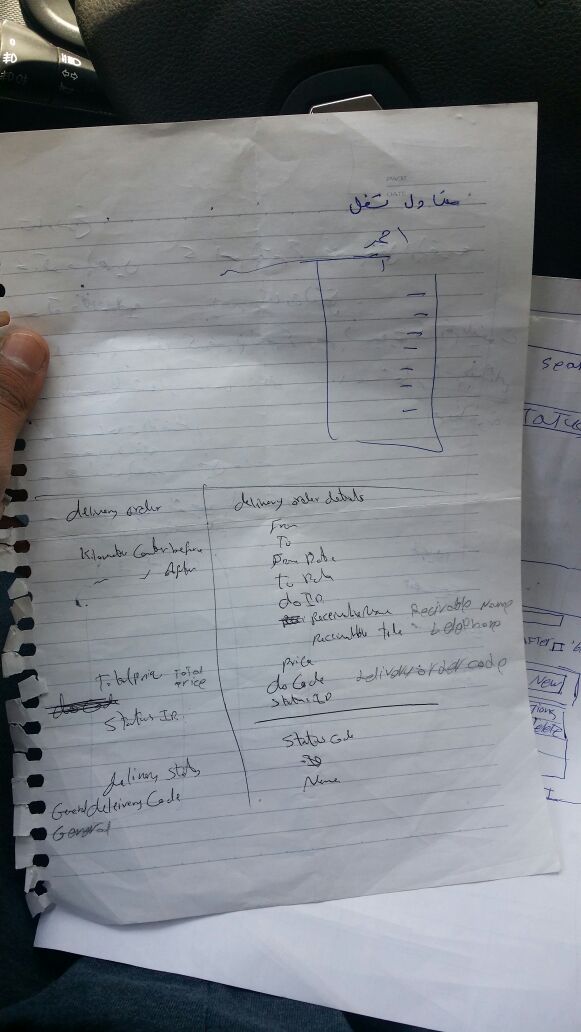 PAGE
DATE
مقاول نقل
احمد
delivery order
Kilometer Counter before
" " After
Total price Total price
Status ID
delivery status
General deleivery Code
General
delivery order details
From
To
From Date
to Date
do ID
Receivable Name Recivable Name
Receivable tele Telephone
price
do Code delivery order code
Status ID
Status Code
ID
Name
New
Delete